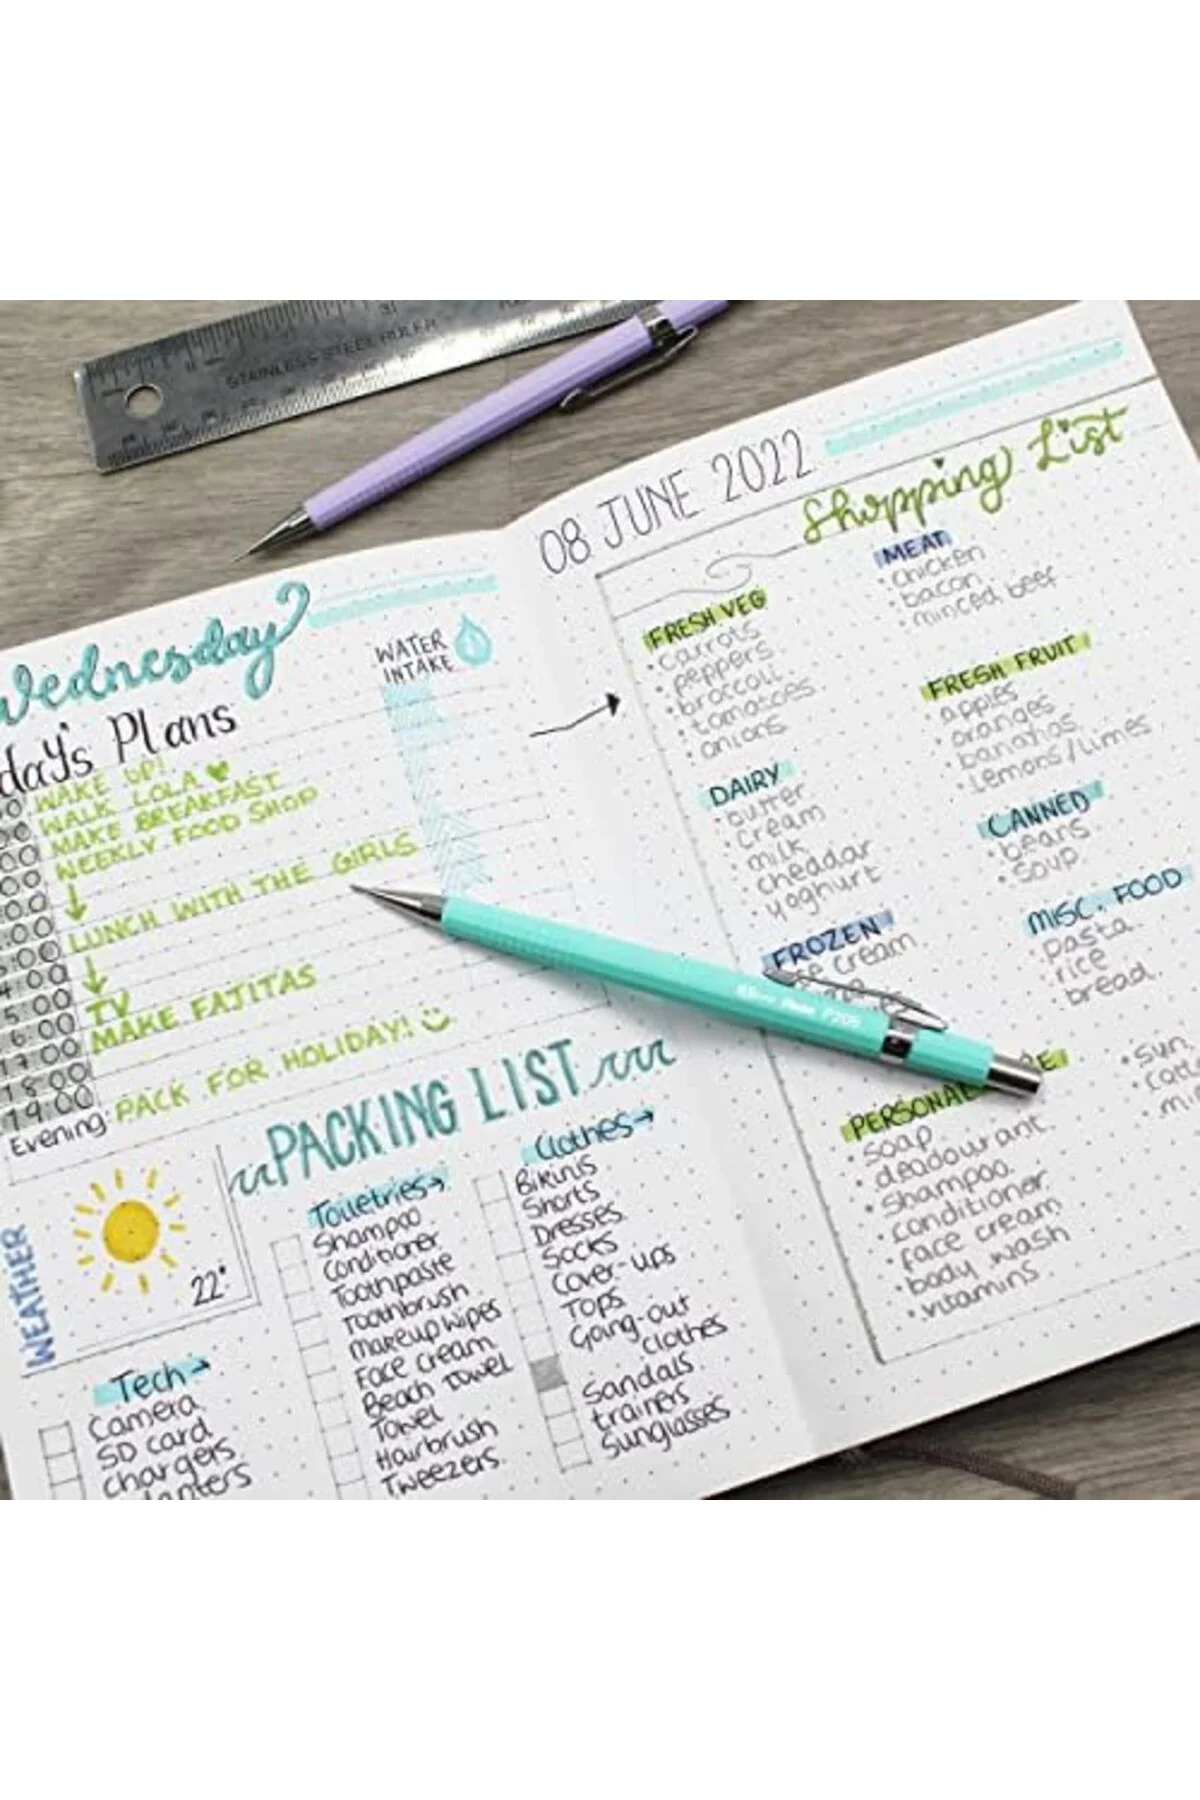 STAINLESS STEEL RULER
Wednesday
WATER
INTAKE
Plans
WAKE UP!
WALK LOLA
MAKE BREAKFAST
WEEKLY FOOD SHOP
LUNCH WITH THE GIRLS
TV
MAKE FAJITAS
PACK FOR HOLIDAY!
15:00
16:00
17:00
18:00
19:00
Evening:
WEATHER
22°
PACKING LIST
Tech
Camera
SD card
chargers
Toiletries
Shampoo
Conditioner
Toothpaste
Toothbrush
Makeup Wipes
Face Cream
Beach Towel
Towel
Hairbrush
Tweezers
Clothes
Bikinis
Shorts
Dresses
Socks
Cover-ups
Tops
Going-out
clothes
Sandals
trainers
Sunglasses
08 JUNE 2022
Shopping List
FRESH VEG
• carrots
• peppers
• broccoli
• tomatoes
• onions
DAIRY
• butter
• cream
• milk
• cheddar
• yoghurt
FROZEN
cream
PERSONAL
• soap
• deadourant
• shampoo
• conditioner
• face cream
• body wash
• vitamins
MEAT
• chicken
• bacon
• minced beef
FRESH FRUIT
• apples
• oranges
• bananas
• lemons/limes
CANNED
• beans
• soup
MISC. FOOD
• pasta
• rice
• bread
• sun
Pentel P205